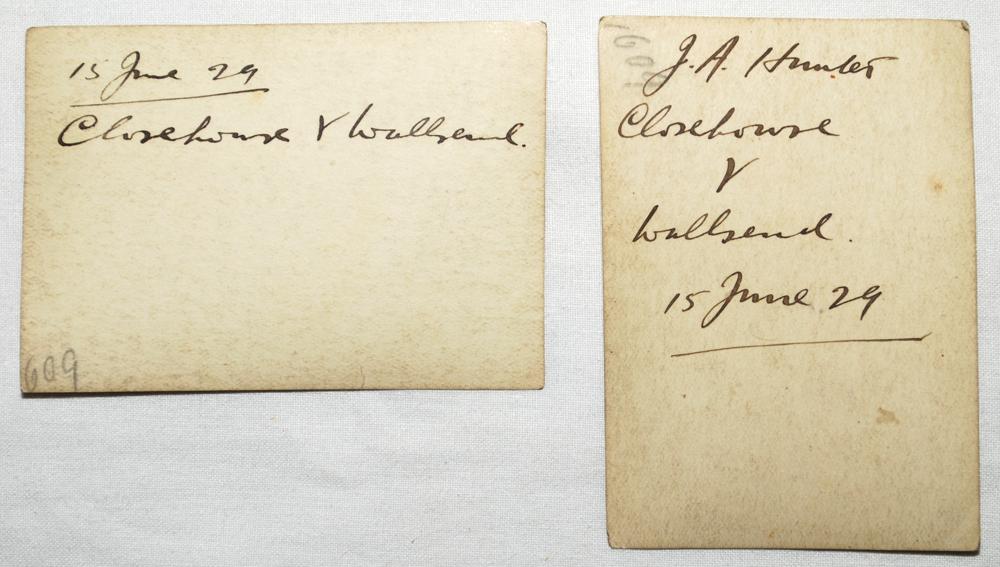 15 June 29
Closehouse V Wallsend.
609
609
J. A. Hunter
Closehouse
V
Wallsend.
15 June 29